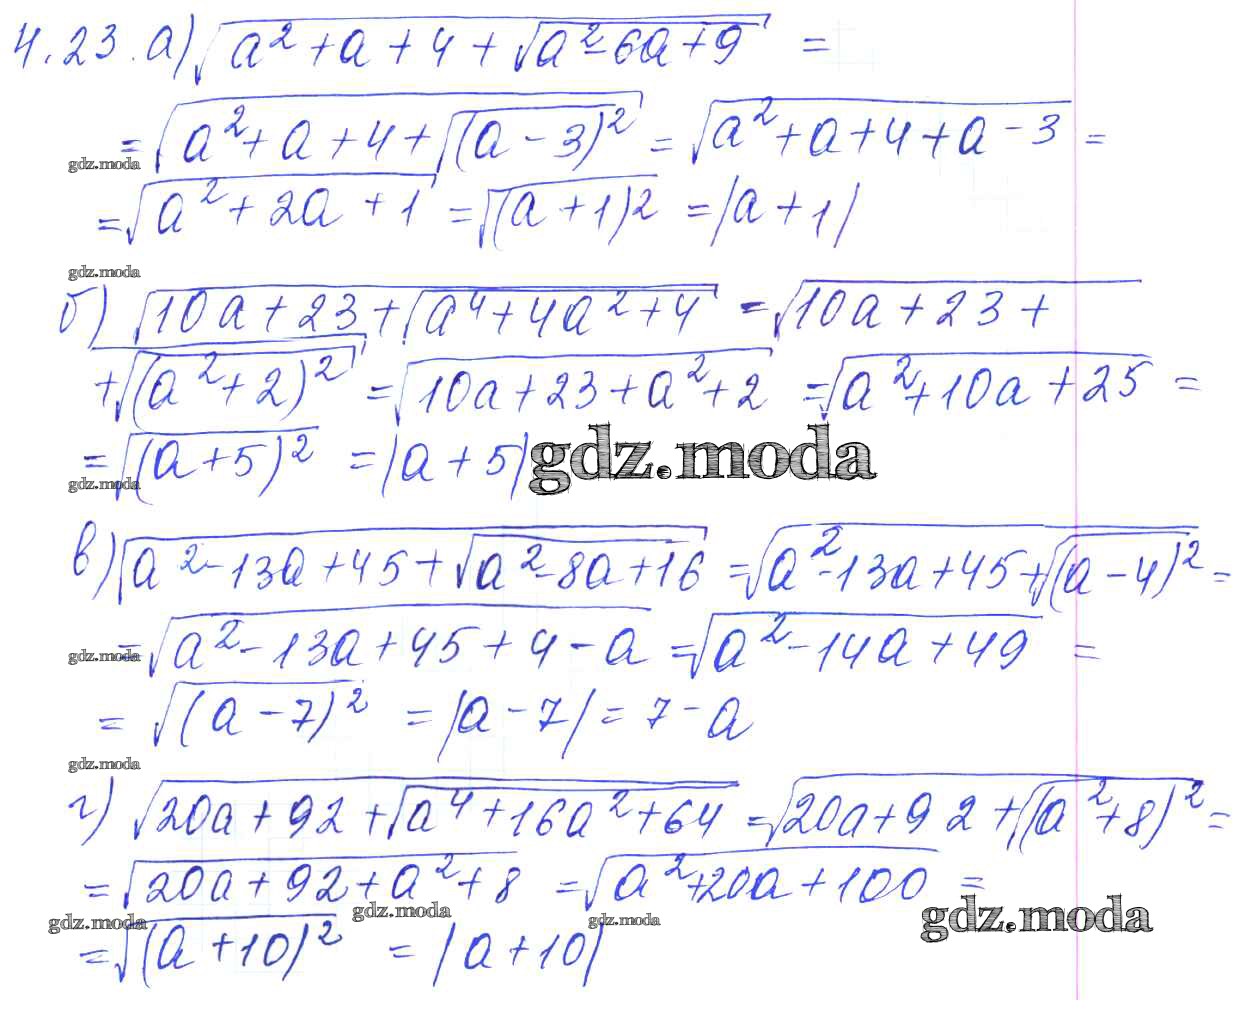 4.23. а) √(a² + a + 4 + √(a² - 6a + 9)) =
= √(a² + a + 4 + √((a - 3)²)) = √(a² + a + 4 + a - 3) =
gdz.moda
= √(a² + 2a + 1) = √((a + 1)²) = |a + 1|
gdz.moda
б) √(10a + 23 + √(a⁴ + 4a² + 4)) = √(10a + 23 +
+ √((a² + 2)²)) = √(10a + 23 + a² + 2) = √(a² + 10a + 25) =
= √((a + 5)²) = |a + 5| gdz.moda
gdz.moda
в) √(a² - 13a + 45 + √(a² - 8a + 16)) = √(a² - 13a + 45 + √((a - 4)²)) =
= √(a² - 13a + 45 + 4 - a) = √(a² - 14a + 49) =
gdz.moda
= √((a - 7)²) = |a - 7| = 7 - a
gdz.moda
г) √(20a + 92 + √(a⁴ + 16a² + 64)) = √(20a + 92 + √((a² + 8)²)) =
= √(20a + 92 + a² + 8) = √(a² + 20a + 100) =
gdz.moda gdz.moda gdz.moda gdz.moda
= √((a + 10)²) = |a + 10|